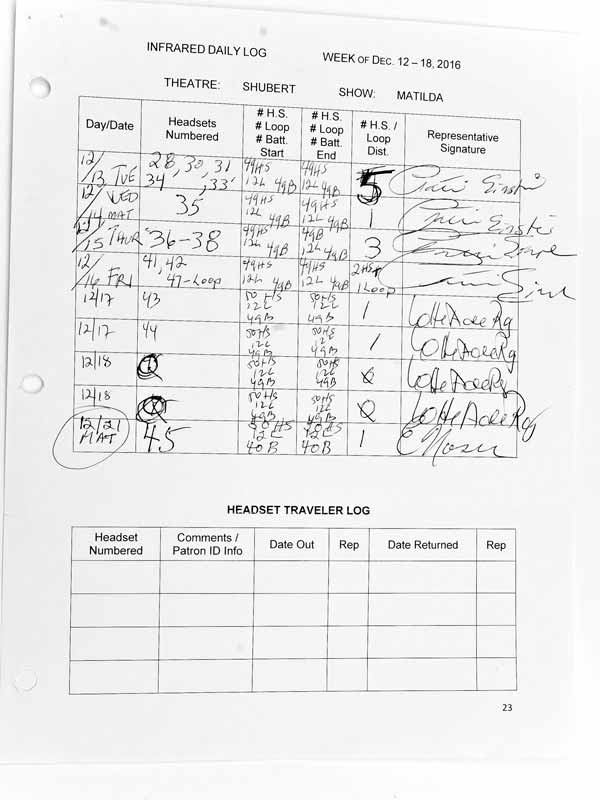 INFRARED DAILY LOG WEEK OF DEC. 12 – 18, 2016
THEATRE: SHUBERT SHOW: MATILDA
Day/Date Headsets Numbered # H.S. # Loop # Batt. Start # H.S. # Loop # Batt. End # H.S. / Loop Dist. Representative Signature
12/13 TUE 28, 30, 31 34, 33 49HS 12L 49B 49HS 12L 49B 5
12/14 WED MAT 35 49HS 12L 49B 49HS 12L 49B 1
12/15 THUR 36-38 49HS 12L 49B 49HS 12L 49B 3
12/16 FRI 41, 42 47-Loop 49HS 12L 49B 49HS 12L 49B 2HS 1Loop
12/17 43 50HS 12L 49B 50HS 12L 49B 1
12/17 44 50HS 12L 49B 50HS 12L 49B 1
12/18 50HS 12L 49B 50HS 12L 49B 0
12/18 50HS 12L 49B 50HS 12L 49B 0
12/21 MAT 45 50HS 12L 40B 50HS 12L 40B 1
HEADSET TRAVELER LOG
Headset Numbered Comments / Patron ID Info Date Out Rep Date Returned Rep
23